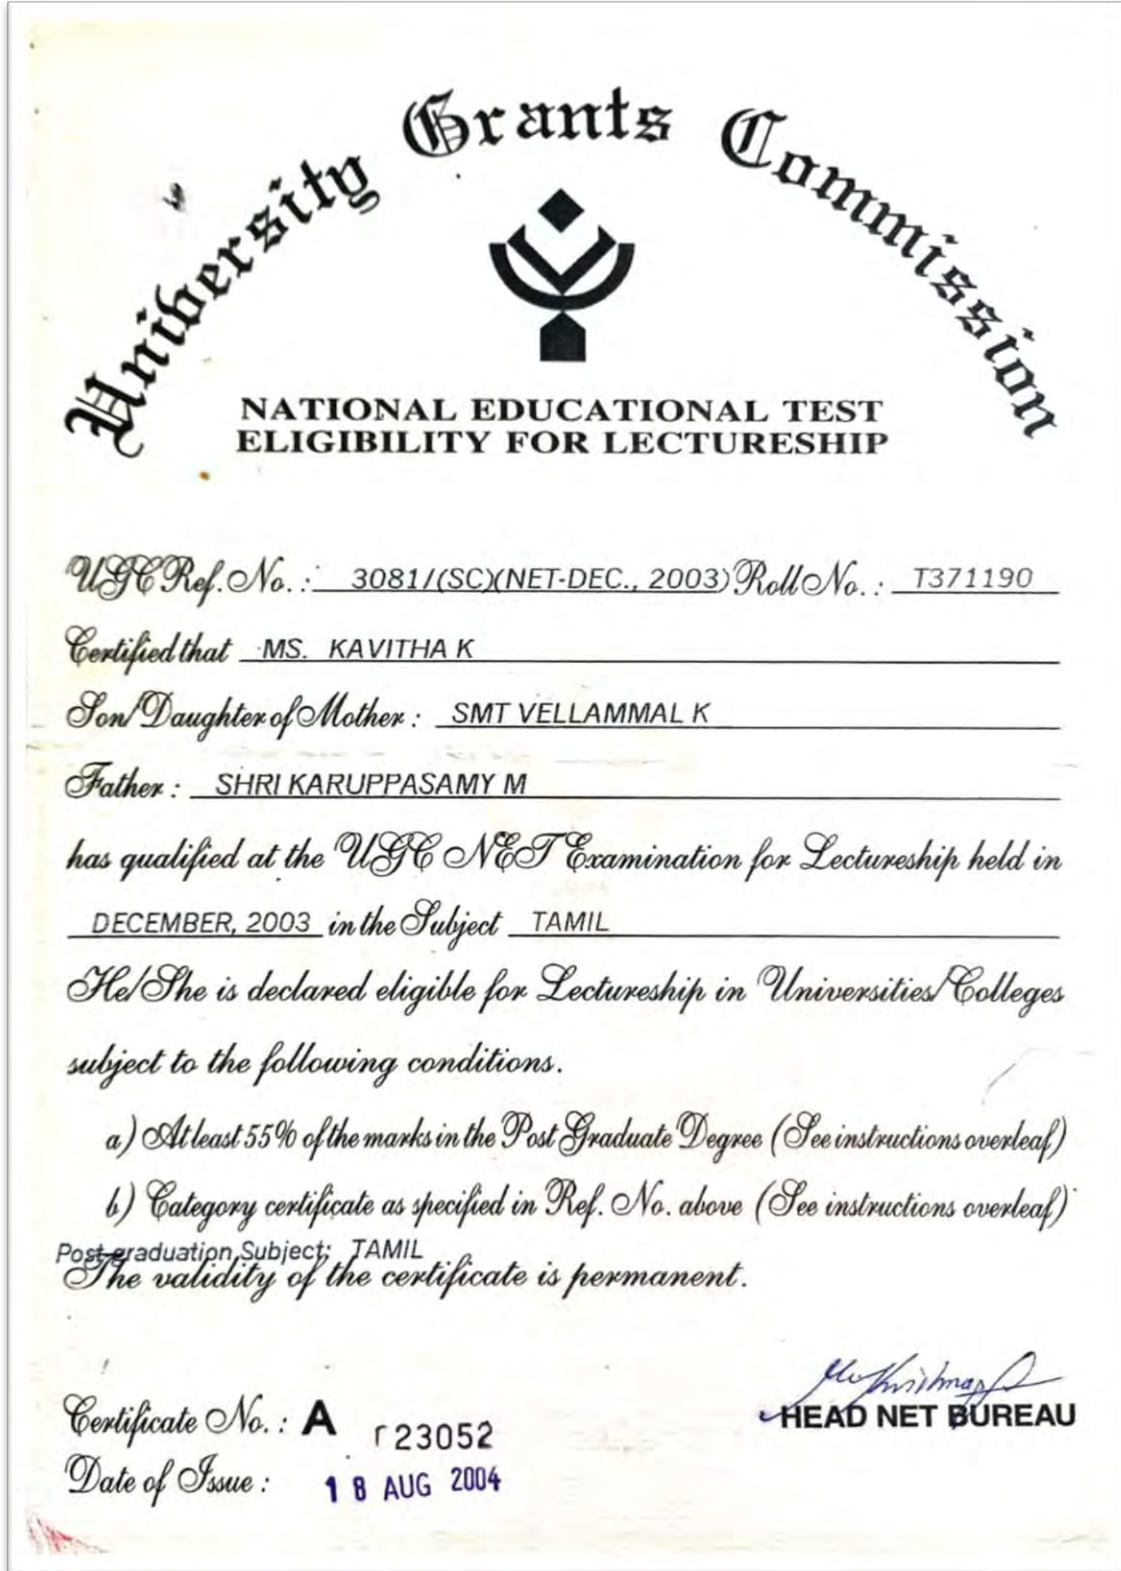 University Grants Commission
NATIONAL EDUCATIONAL TEST
ELIGIBILITY FOR LECTURESHIP
UGC Ref. No. : 3081/(SC)(NET-DEC., 2003) Roll No. : T371190
Certified that MS. KAVITHA K
Son/Daughter of Mother : SMT VELLAMMAL K
Father : SHRI KARUPPASAMY M
has qualified at the UGC NET Examination for Lectureship held in
DECEMBER, 2003 in the Subject TAMIL
He/She is declared eligible for Lectureship in Universities/Colleges
subject to the following conditions.
a) Atleast 55% of the marks in the Post Graduate Degree (See instructions overleaf)
b) Category certificate as specified in Ref. No. above (See instructions overleaf)
Post-graduation Subject: TAMIL
The validity of the certificate is permanent.
HEAD NET BUREAU
Certificate No. : A 23052
Date of Issue : 18 AUG 2004